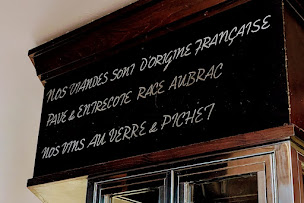 NOS VIANDES SONT D'ORIGINE FRANÇAISE
PAVE & ENTRECOTE RACE AUBRAC
NOS VINS AU VERRE & PICHET